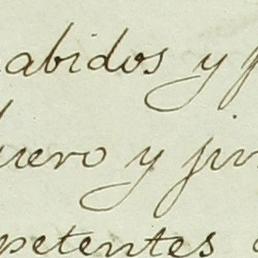 abidos y
uero y
petentes